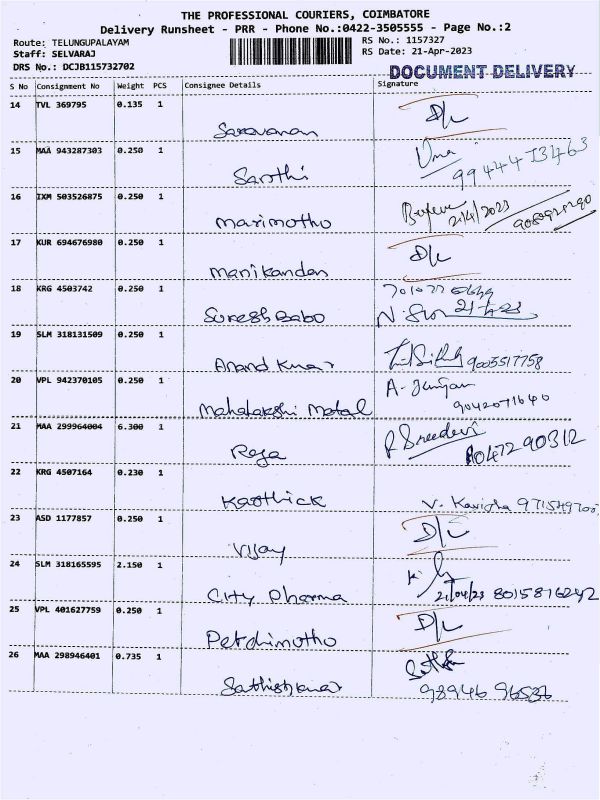 THE PROFESSIONAL COURIERS, COIMBATORE
Delivery Runsheet - PRR - Phone No.:0422-3505555 - Page No.:2
Route: TELUNGUPALAYAM RS No.: 1157327
Staff: SELVARAJ RS Date: 21-Apr-2023
DRS No.: DCJB115732702
DOCUMENT DELIVERY
S No Consignment No Weight PCS Consignee Details Signature
14 TVL 369795 0.135 1
Saravanan D/L
15 MAA 943287303 0.250 1 Uma
Santhi 99444 13463
16 IXM 503526875 0.250 1
Marimuthu 21/4/2023
17 KUR 694676980 0.250 1
Manikandan D/L
18 KRG 4503742 0.250 1
Suresh Babo 21-4-23
19 SLM 318131509 0.250 1
Anand Kumar 9005517758
20 VPL 942370105 0.250 1
Mahalakshi Metal 9042071640
21 MAA 299964004 6.300 1 R Sreedevi
Raja 8047290312
22 KRG 4507164 0.230 1
Karthick V. Kavitha
23 ASD 1177857 0.250 1
Vijay D/L
24 SLM 318165595 2.150 1
City Pharma 21/04/23 8015816242
25 VPL 401627759 0.250 1
Petchimutho D/L
26 MAA 298946401 0.735 1
Sathishkumar 98946 96536